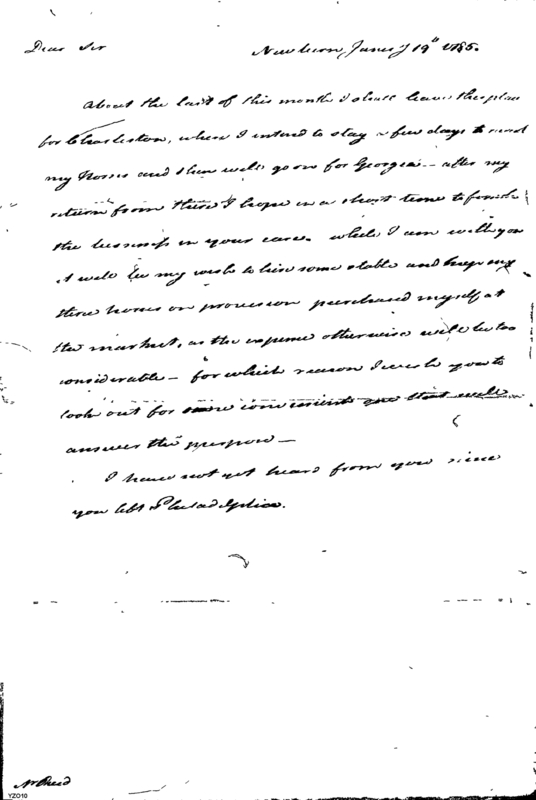 Dear Sir Newbern, Janry 19th 1785.
About the last of this month I shall leave this place
for Charleston, where I intend to stay a few days to rest
my Horses and then will go on for Georgia — after my
return from there I hope in a short time to finish
the business in your care. while I am with you
it will be my wish to hire some stable and keep my
three horses on provision purchased myself at
the market, as the expence otherwise will be too
considerable — for which reason I wish you to
look out for some convenient one that will
answer the purpose —
I have not yet heard from you since
you left Philadelphia.
Mr Read
YZO10